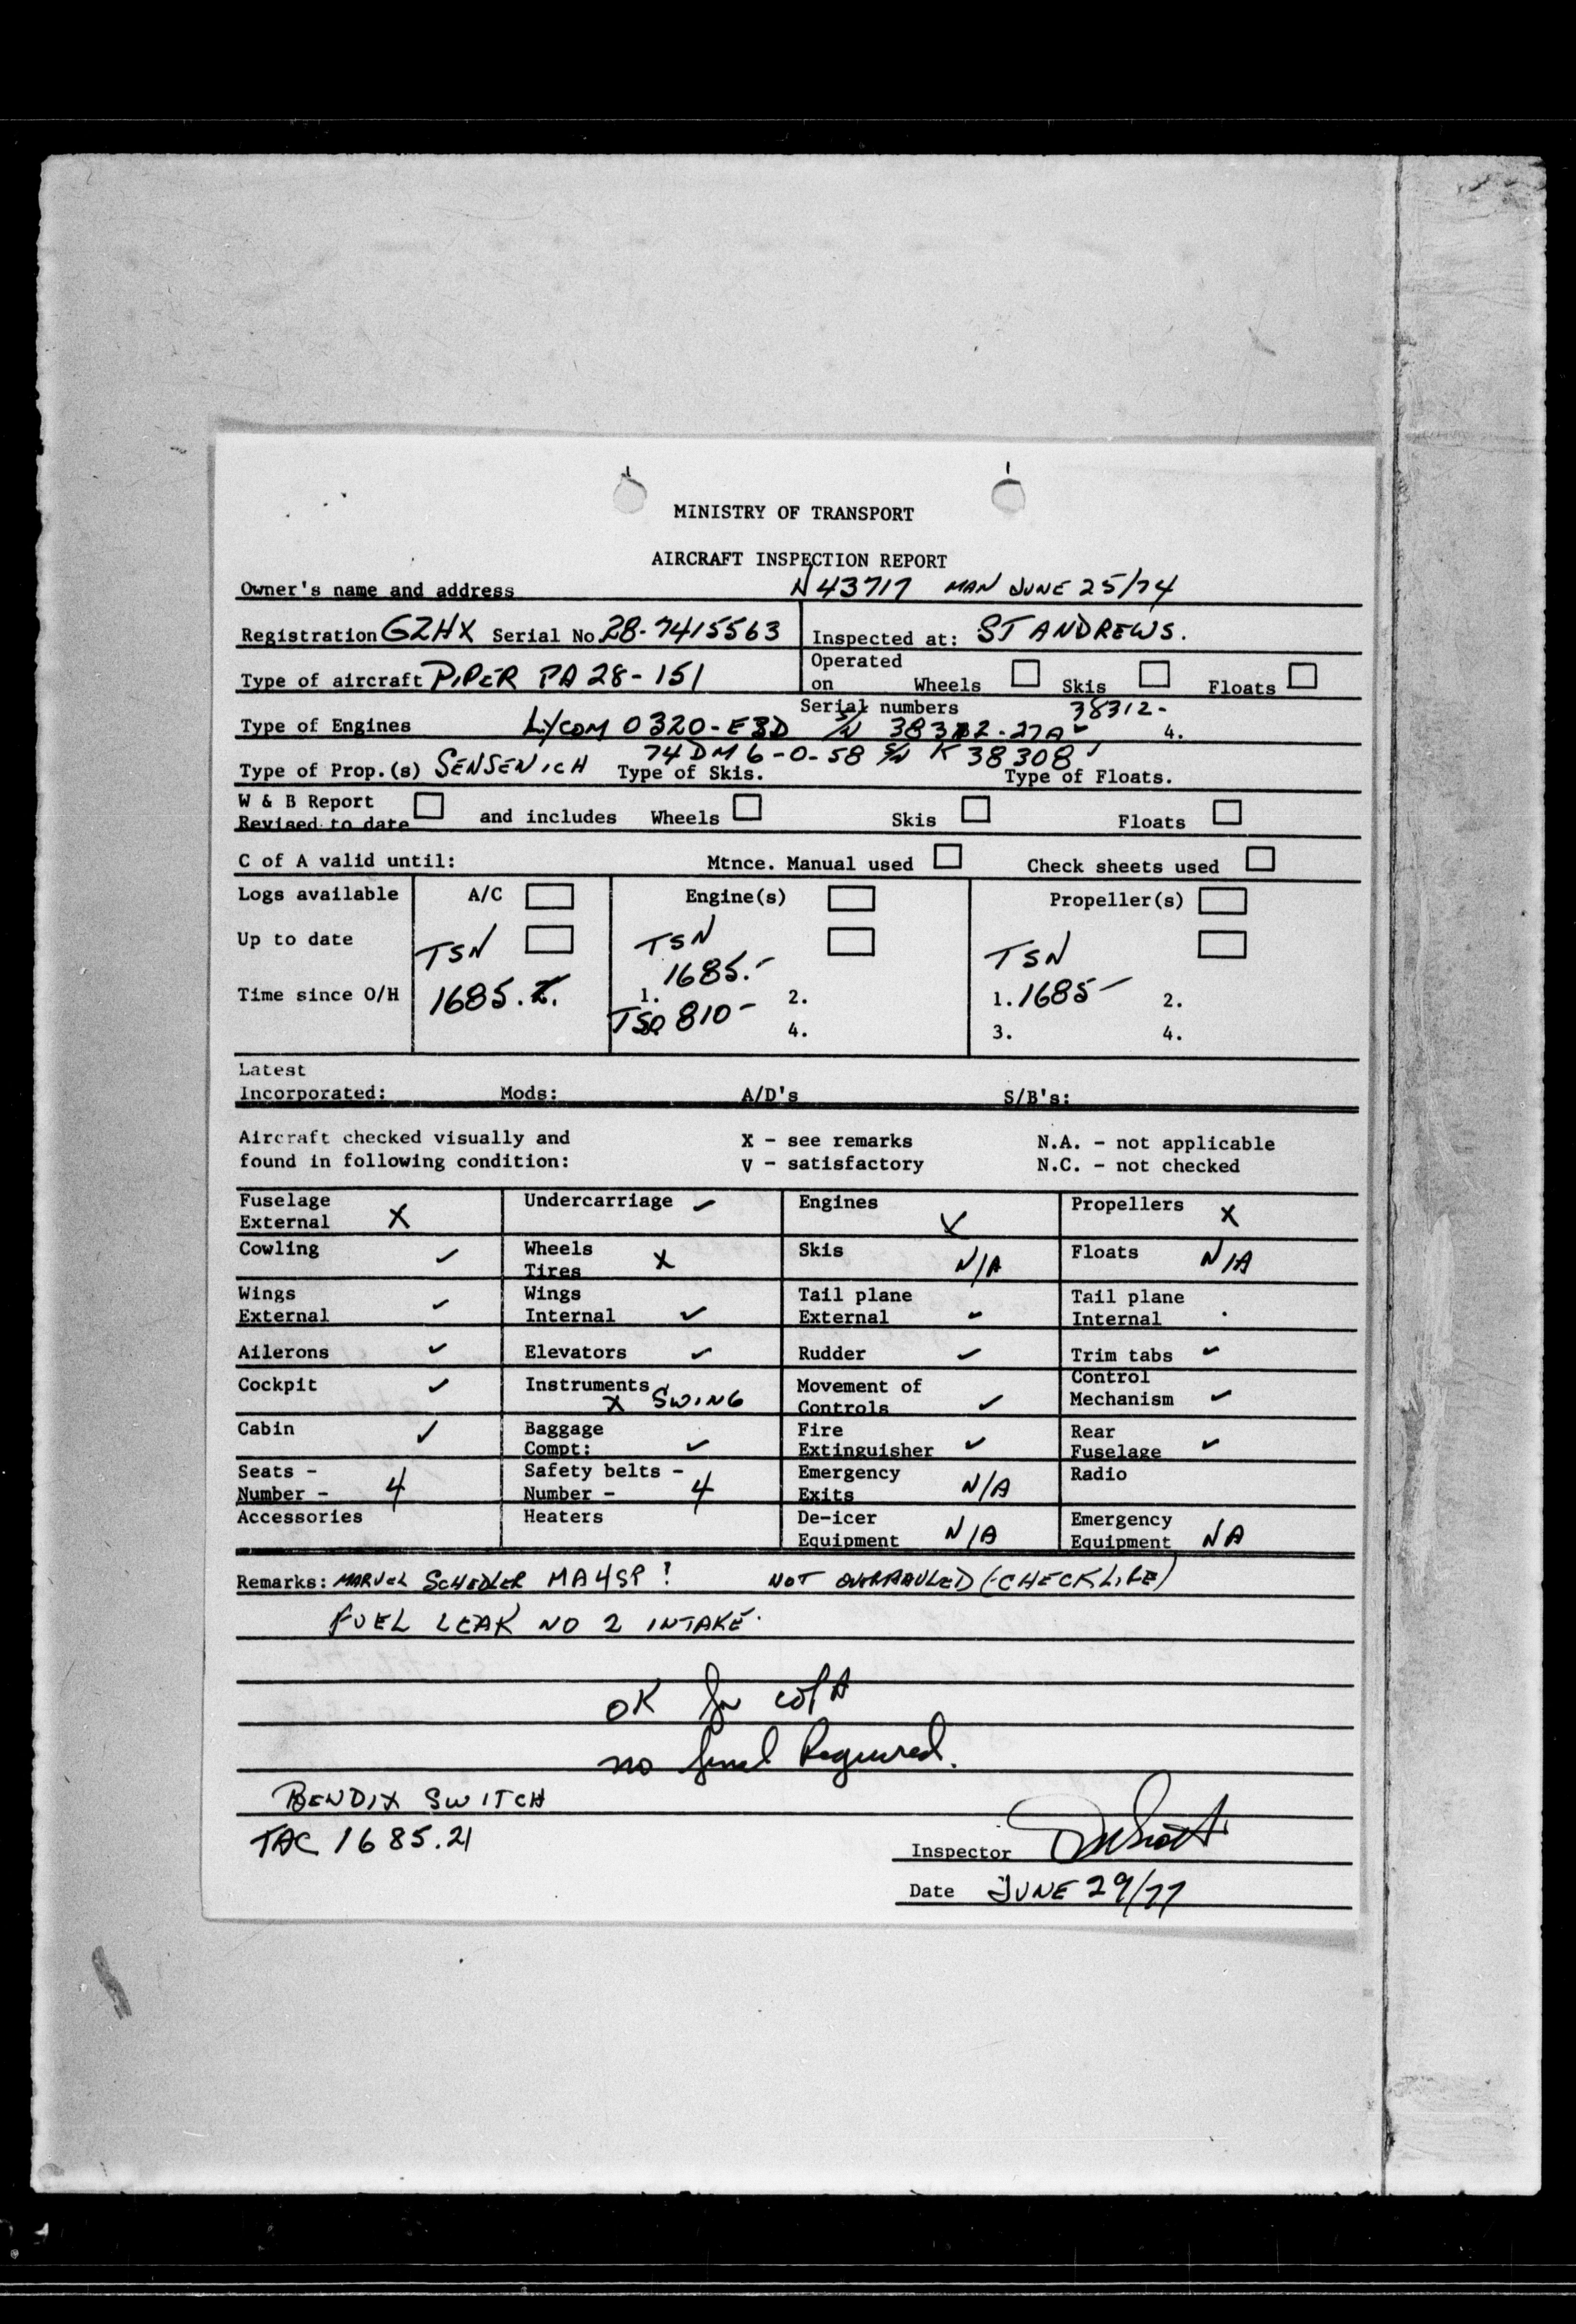 MINISTRY OF TRANSPORT
AIRCRAFT INSPECTION REPORT
Owner's name and address N43717 MAN JUNE 25/74
Registration GZHX Serial No 28-7415563 Inspected at: ST ANDREWS.
Type of aircraft PIPER PA 28-151 Operated on Wheels Skis Floats
Serial numbers 38312-
Type of Engines LYCOM O320-E3D S/N 38312-27A 4.
74DM6-0-58 S/N K38308
Type of Prop.(s) SENSENICH Type of Skis. Type of Floats.
W & B Report
Revised to date and includes Wheels Skis Floats
C of A valid until: Mtnce. Manual used Check sheets used
Logs available A/C Engine(s) Propeller(s)
Up to date TSN TSN TSN
1685.-
Time since O/H 1685.2. 1. 2. 1. 1685- 2.
TSO 810- 4. 3. 4.
Latest
Incorporated: Mods: A/D's S/B's:
Aircraft checked visually and X - see remarks N.A. - not applicable
found in following condition: V - satisfactory N.C. - not checked
Fuselage Undercarriage ✓ Engines Propellers X
External X X
Cowling ✓ Wheels X Skis N/A Floats N/A
Tires
Wings Wings Tail plane Tail plane
External ✓ Internal ✓ External ✓ Internal
Ailerons ✓ Elevators ✓ Rudder ✓ Trim tabs ✓
Cockpit ✓ Instruments Movement of Control
X SWING Controls ✓ Mechanism ✓
Cabin ✓ Baggage Fire Rear
Compt: ✓ Extinguisher ✓ Fuselage ✓
Seats - Safety belts - Emergency Radio
Number - 4 Number - 4 Exits N/A
Accessories Heaters De-icer Emergency
Equipment N/A Equipment NA
Remarks: MARVEL SCHEDLER MA4SP! NOT OVERHAULED (CHECKLIFE)
FUEL LEAK NO 2 INTAKE.
OK for C of A
no final Required.
BENDIX SWITCH
TAC 1685.21
Inspector
Date JUNE 29/77